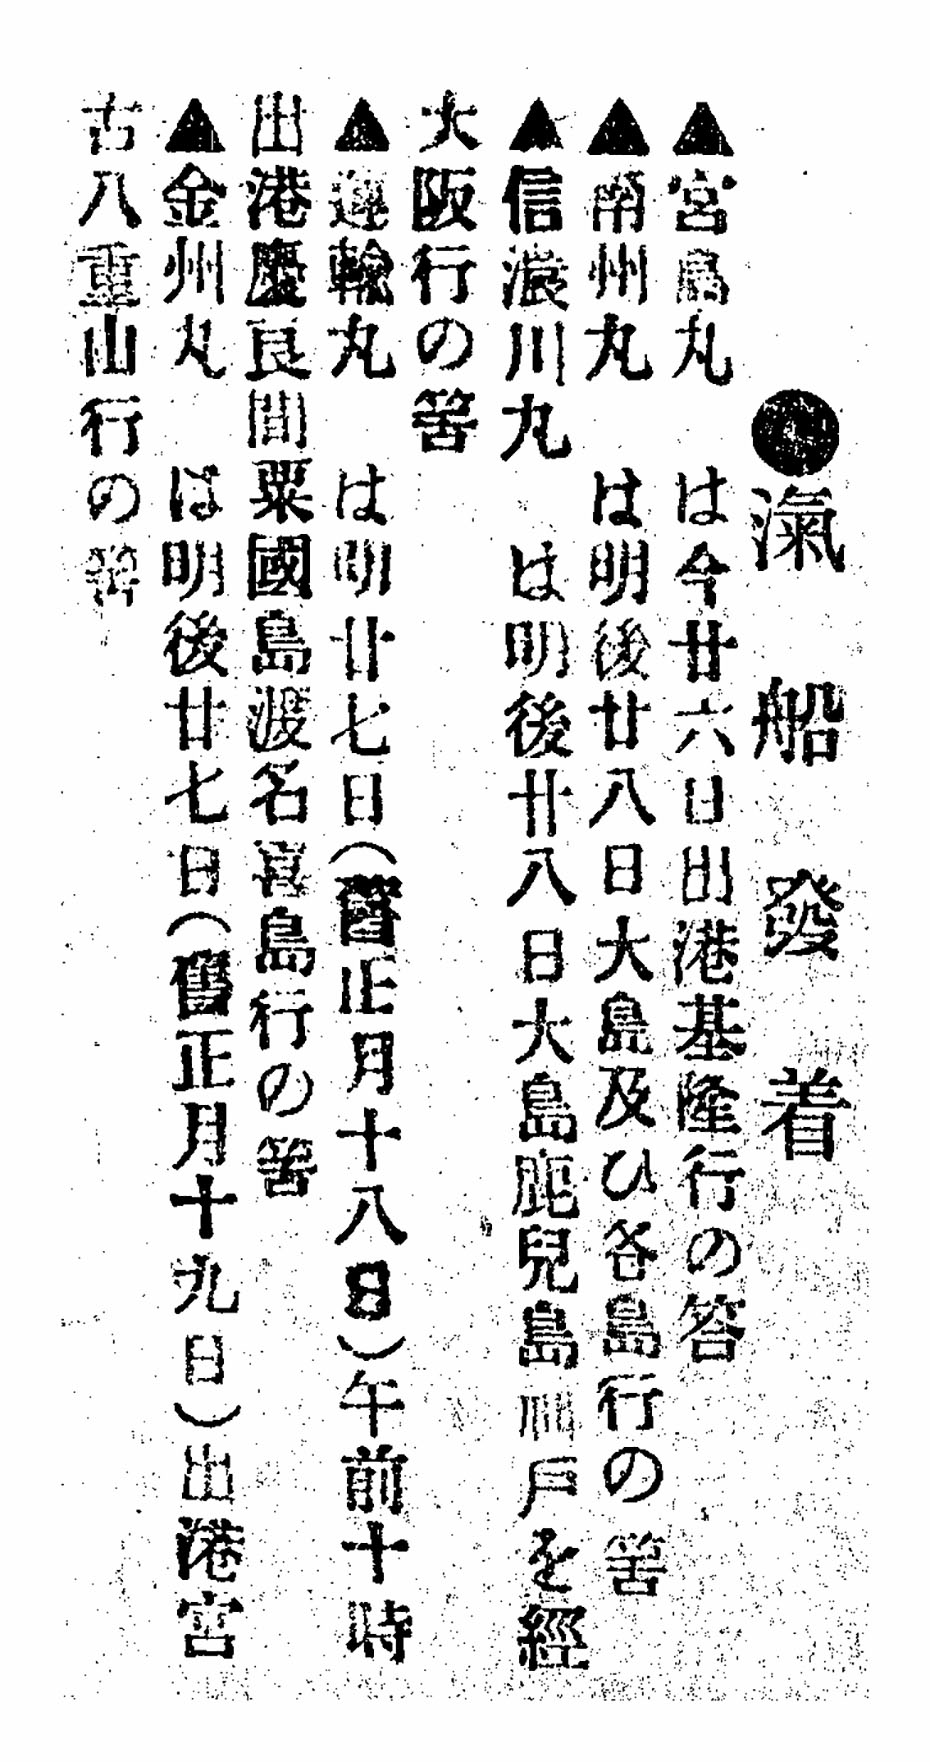 ●滊船發着
▲宮島丸　は今廿六日出港基隆行の筈
▲南州丸　は明後廿八日大島及ひ各島行の筈
▲信濃川丸　は明後廿八日大島鹿兒島神戸を經
大阪行の筈
▲運輸丸　は明廿七日（舊正月十八日）午前十時
出港慶良間粟國島渡名喜島行の筈
▲金州丸　は明後廿七日（舊正月十九日）出港宮
古八重山行の筈